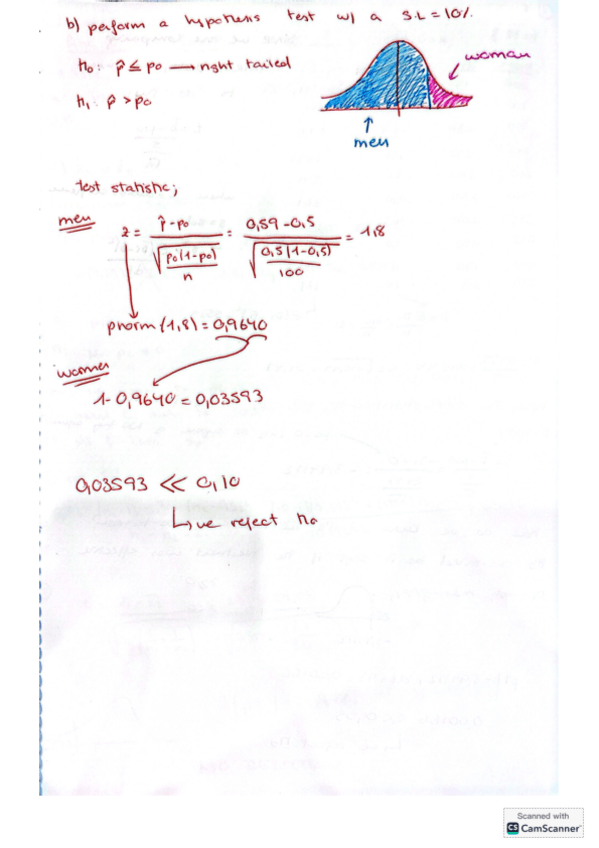 b) perform a hypothesis test w/ a S.L = 10%.
h₀: p̂ ≤ p₀ → right tailed
h₁: p̂ > p₀
woman
men
test statistic;
men
z = (p̂ - p₀) / √(p₀(1-p₀)/n) = (0,59 - 0,5) / √(0,5(1-0,5)/100) = 1,8
pnorm(1,8) = 0,9640
women
1- 0,9640 = 0,03593
0,03593 << 0,10
↳ we reject h₀
Scanned with
CS CamScanner